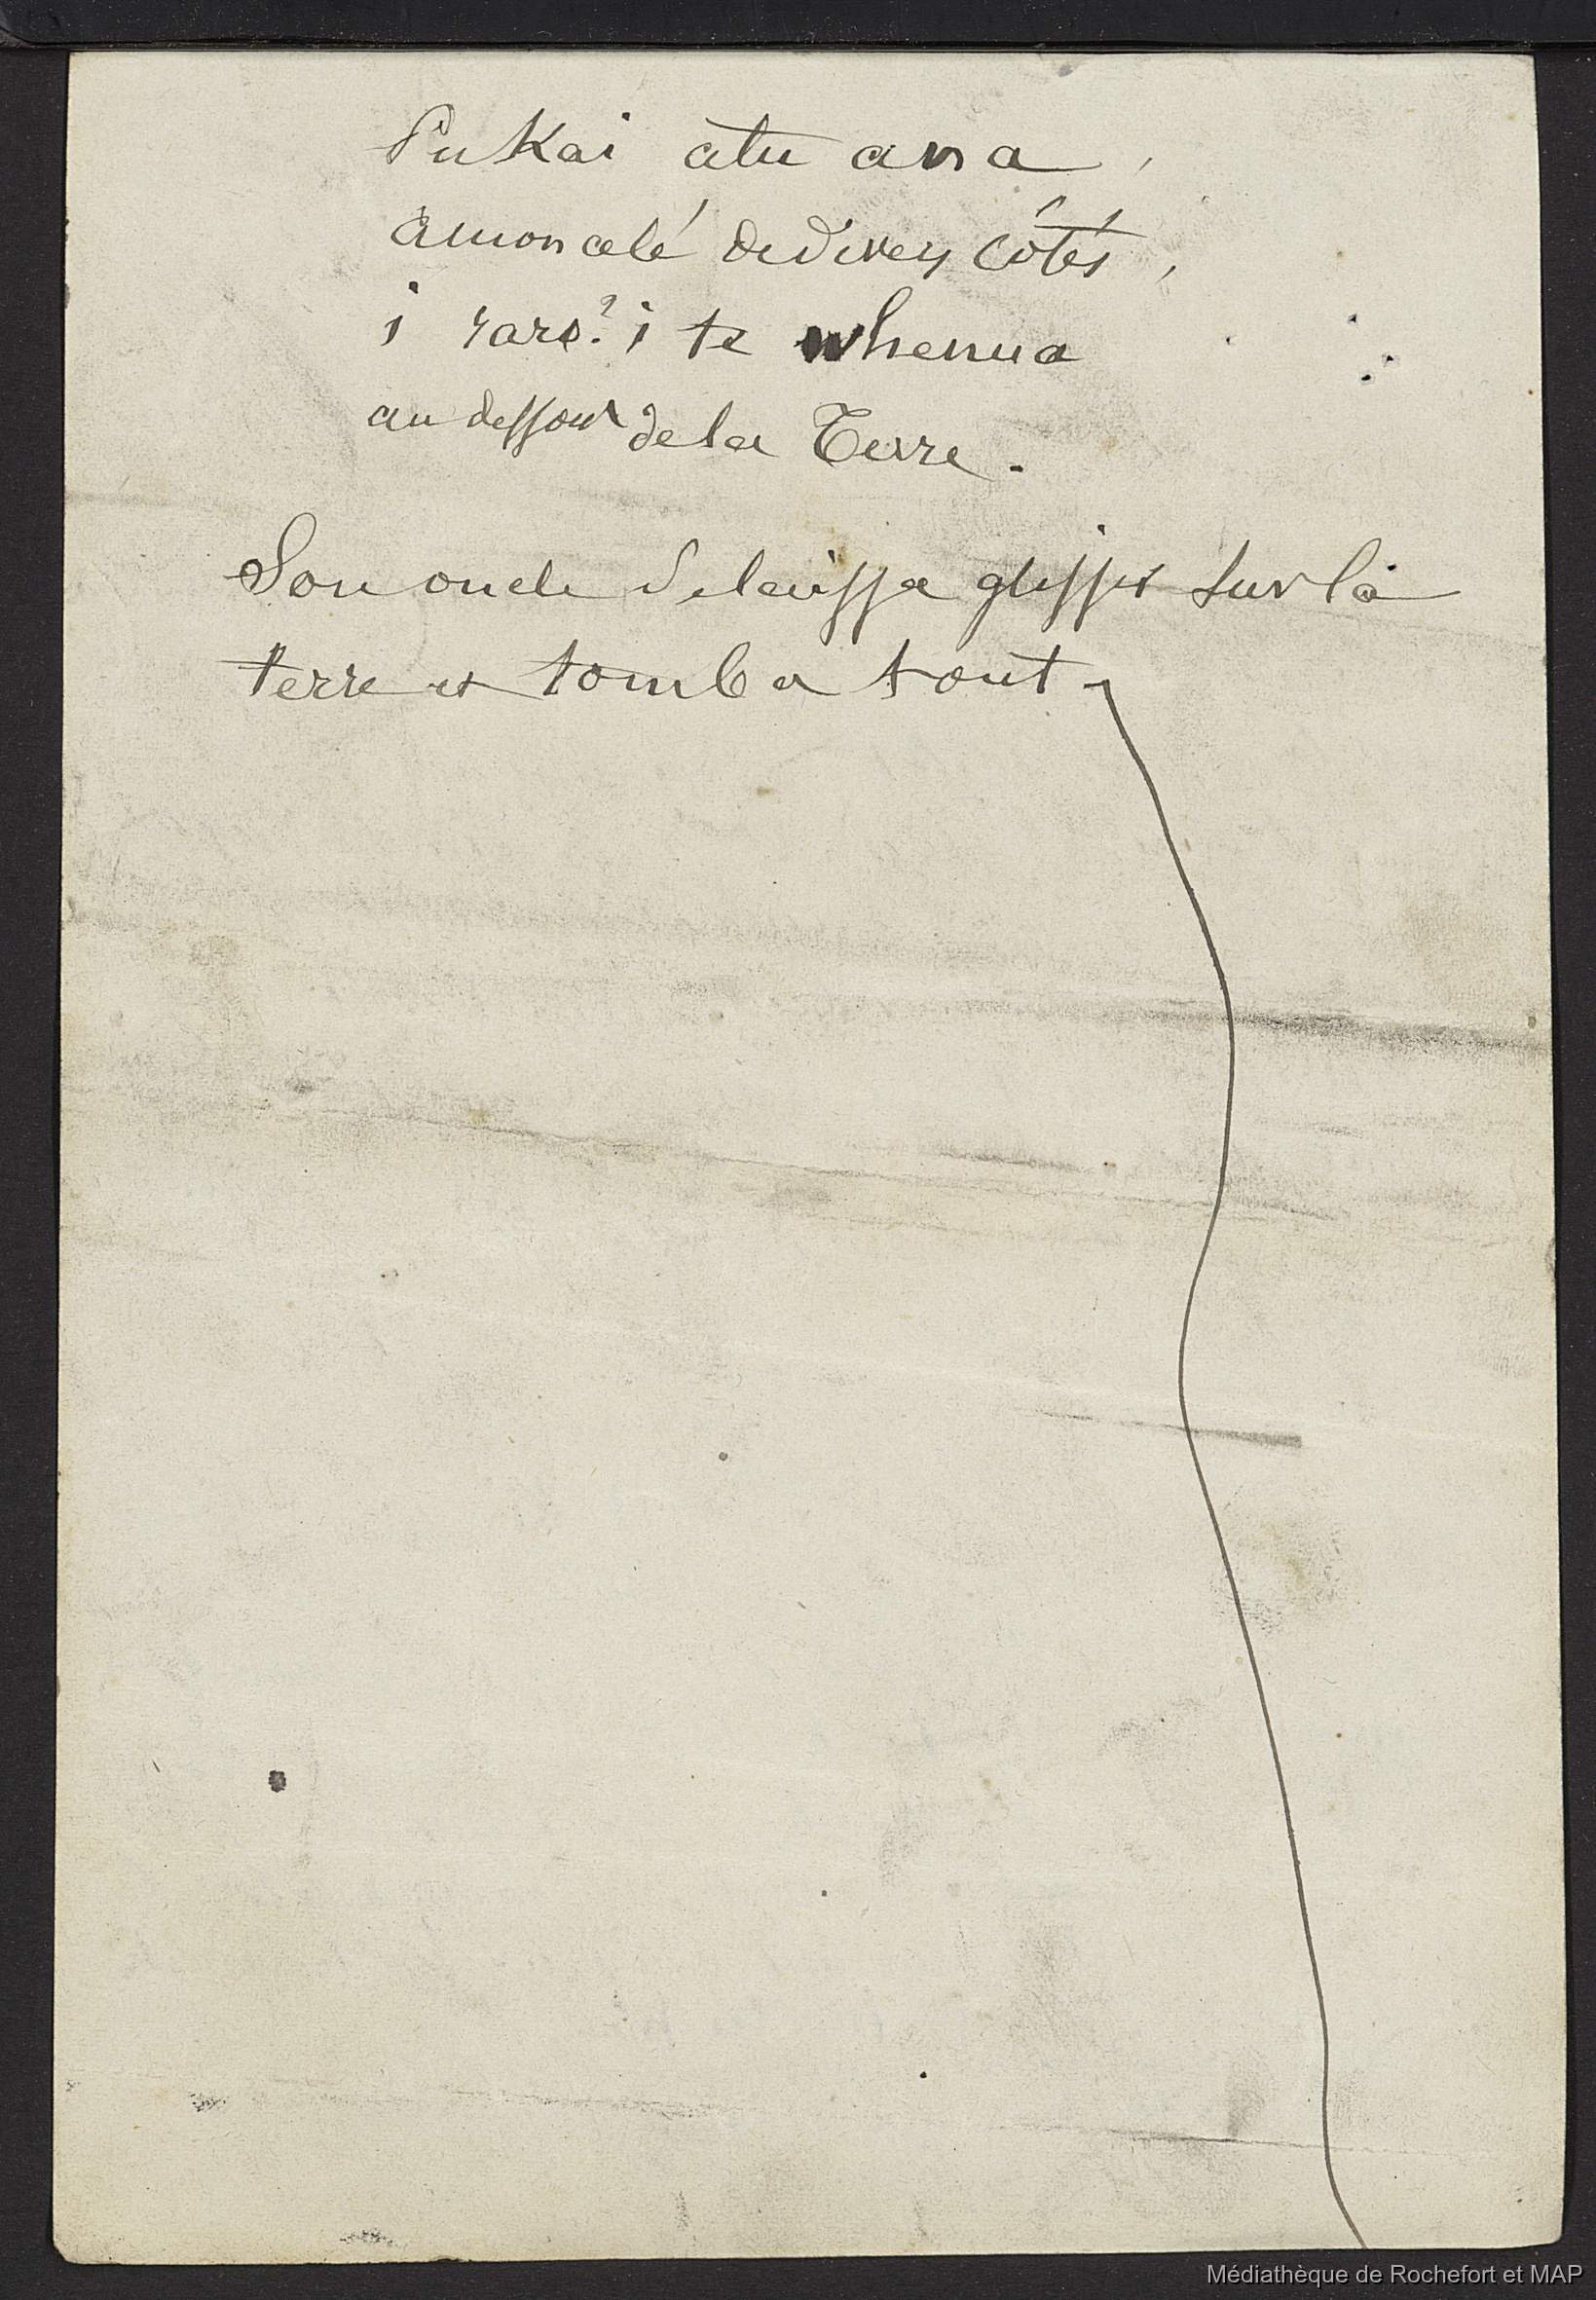 Pukai atu ana,
amoncelé de divers côtés,
i raro? i te whenua
au dessous de la Terre.
Son oncle se laissa glisser sur la
terre et tomba sout
Médiathèque de Rochefort et MAP